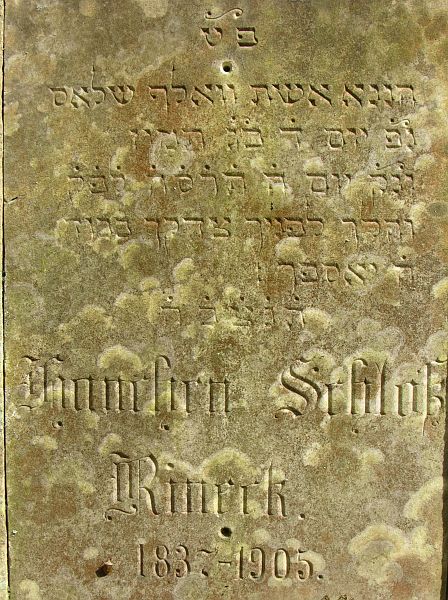 פ ט
הננא אשת וואלף שלאס
נפ' יום ד' כג' תמוז
ונק' יום ה' תרס"ה לפק
והלך לפניך צדקך כבוד
ה' יאספך :
ת נ צ ב ה
Hannchen Schloß
Rineck.
1837-1905.